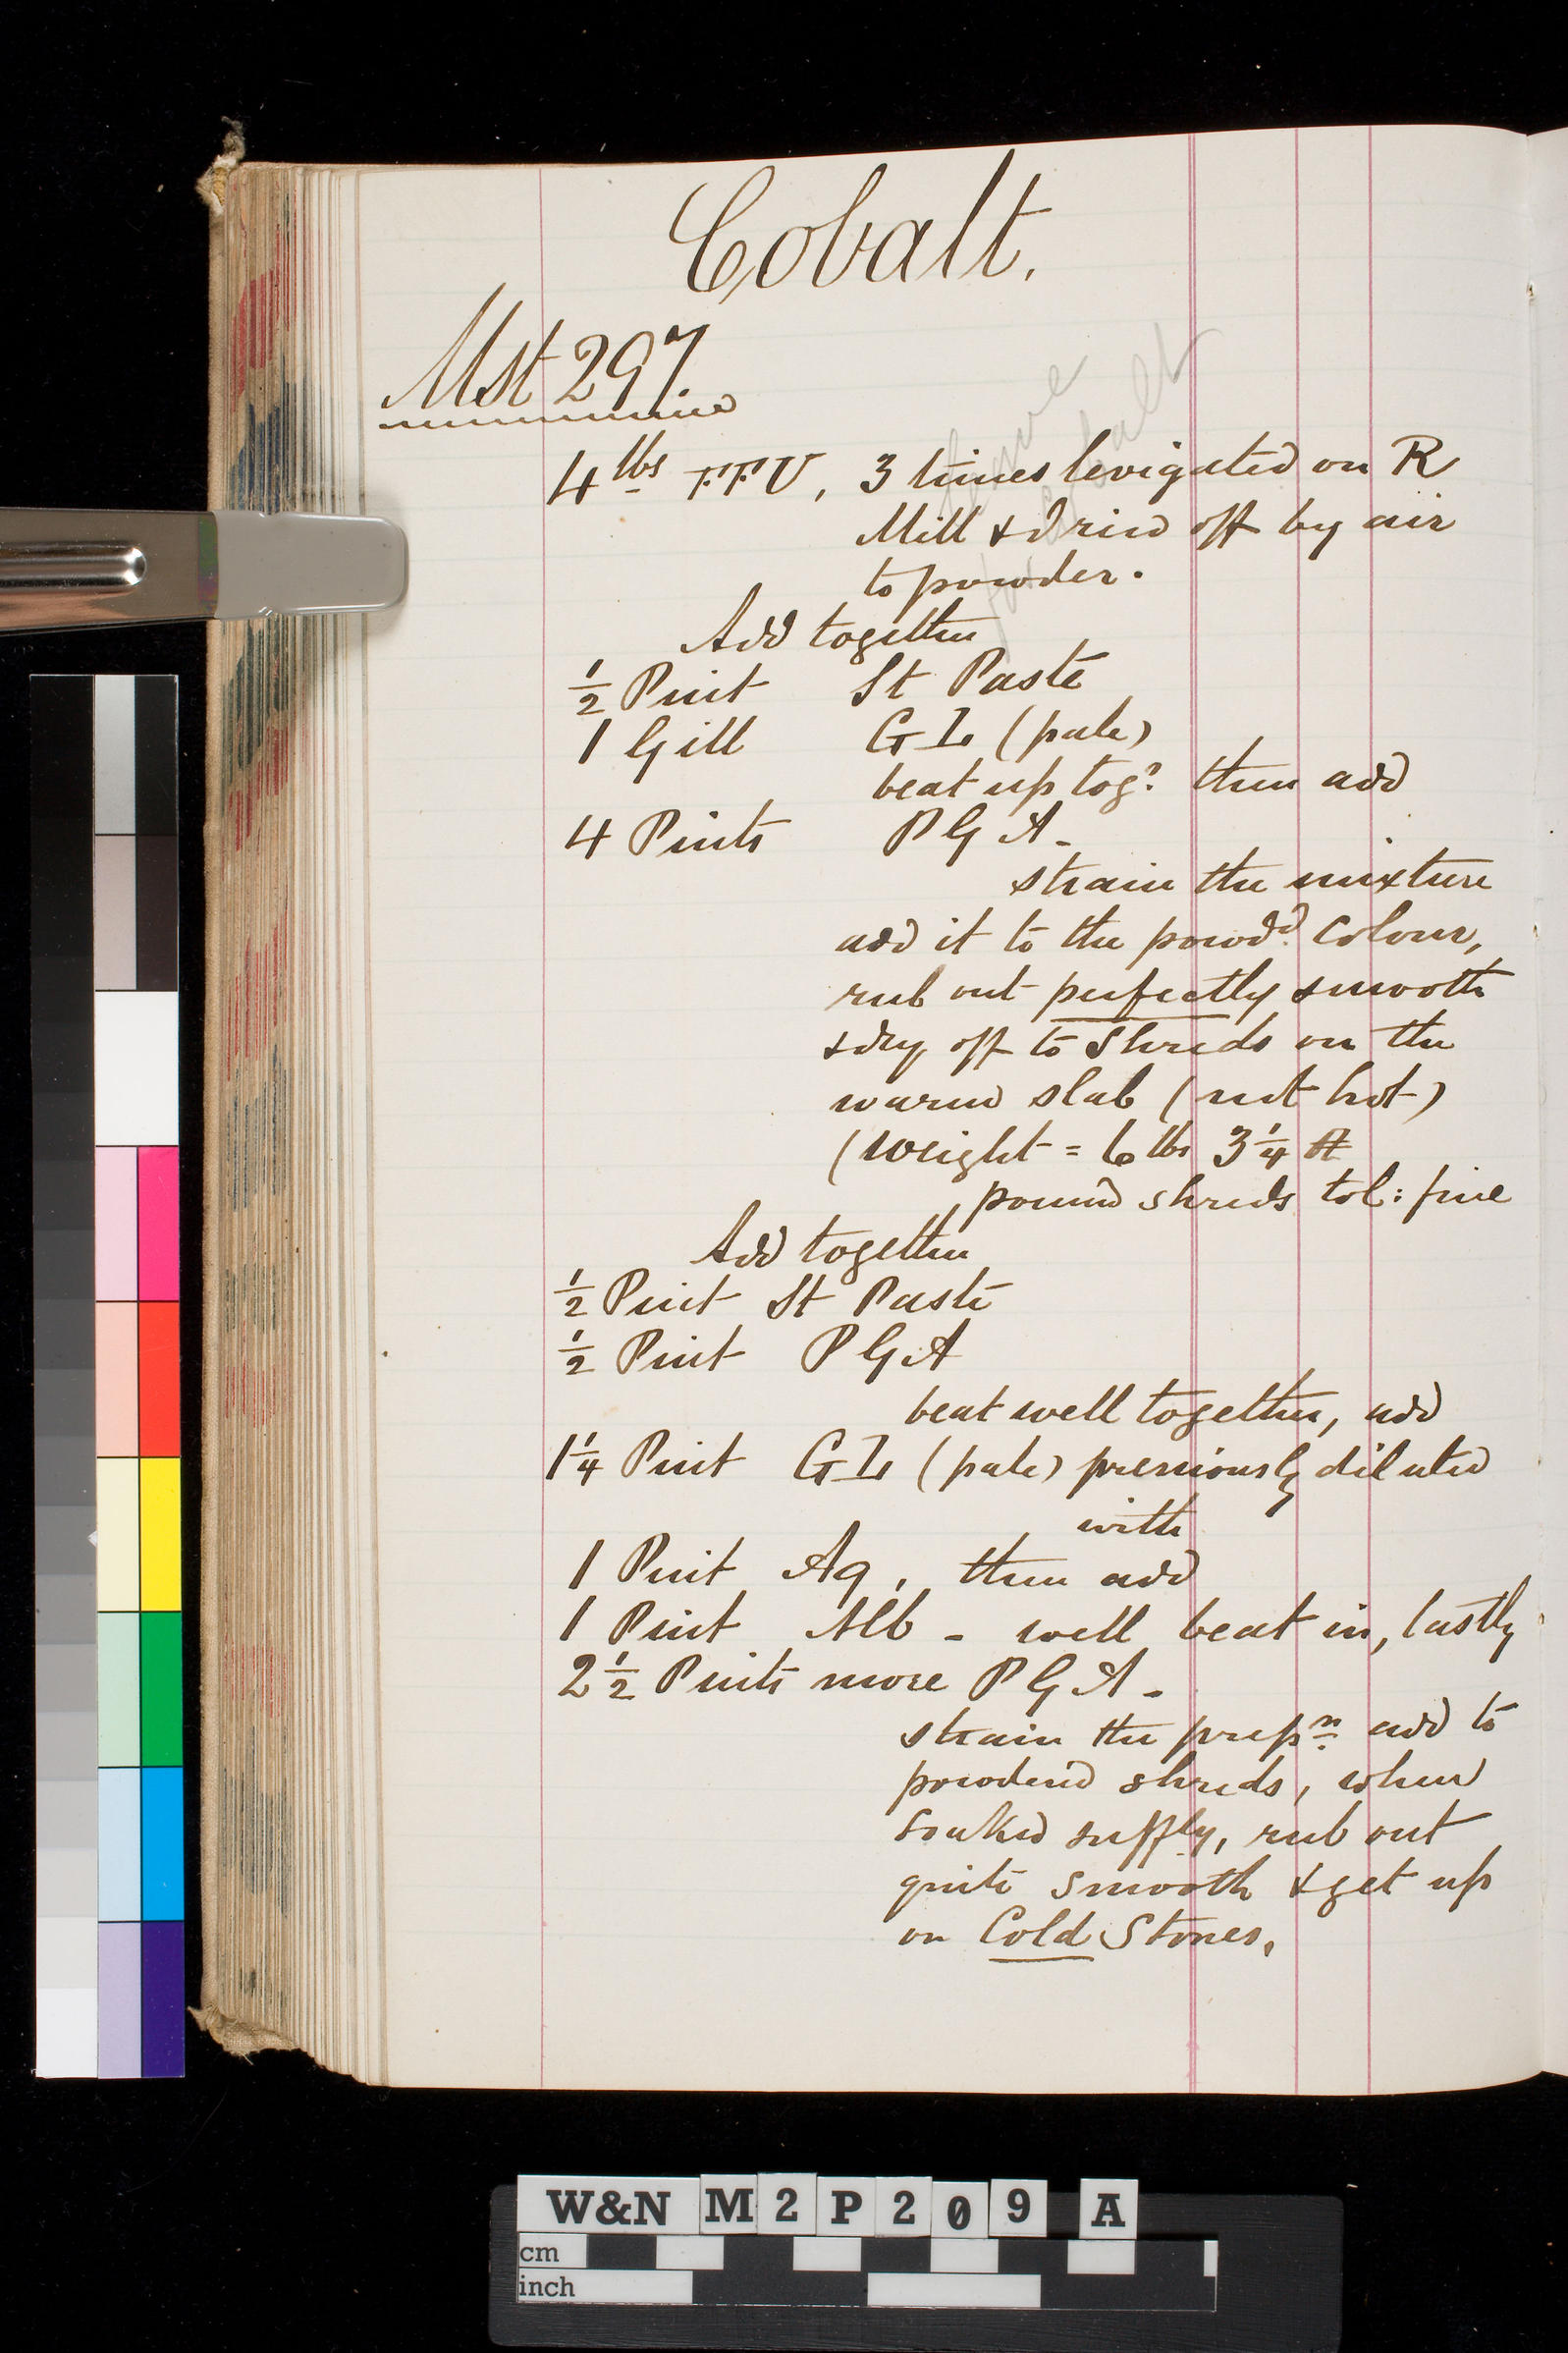 Cobalt.
Mst 297.
4 lbs FFU, 3 times levigated on R
Mill & dried off by air
to powder.
Add together
½ Pint St Paste
1 Gill GL (pale)
beat up togr. then add
4 Pints P G A -
strain the mixture
add it to the powdd. Colour,
rub out perfectly smooth
& dry off to Shreds on the
warm slab (not hot)
(weight = 6 lbs 3¼
pound shreds tol: fine
Add together
½ Pint St Paste
½ Pint P G A
beat well together, add
1¼ Pint GL (pale) previously diluted
with
1 Pint Aq, then add
1 Pint Alb - well beat in, lastly
2½ Pints more P G A -
strain the prepn. add to
powdered shreds, when
soaked suffly, rub out
quite smooth & get up
on Cold Stones,
W&N M2P209 A
cm
inch